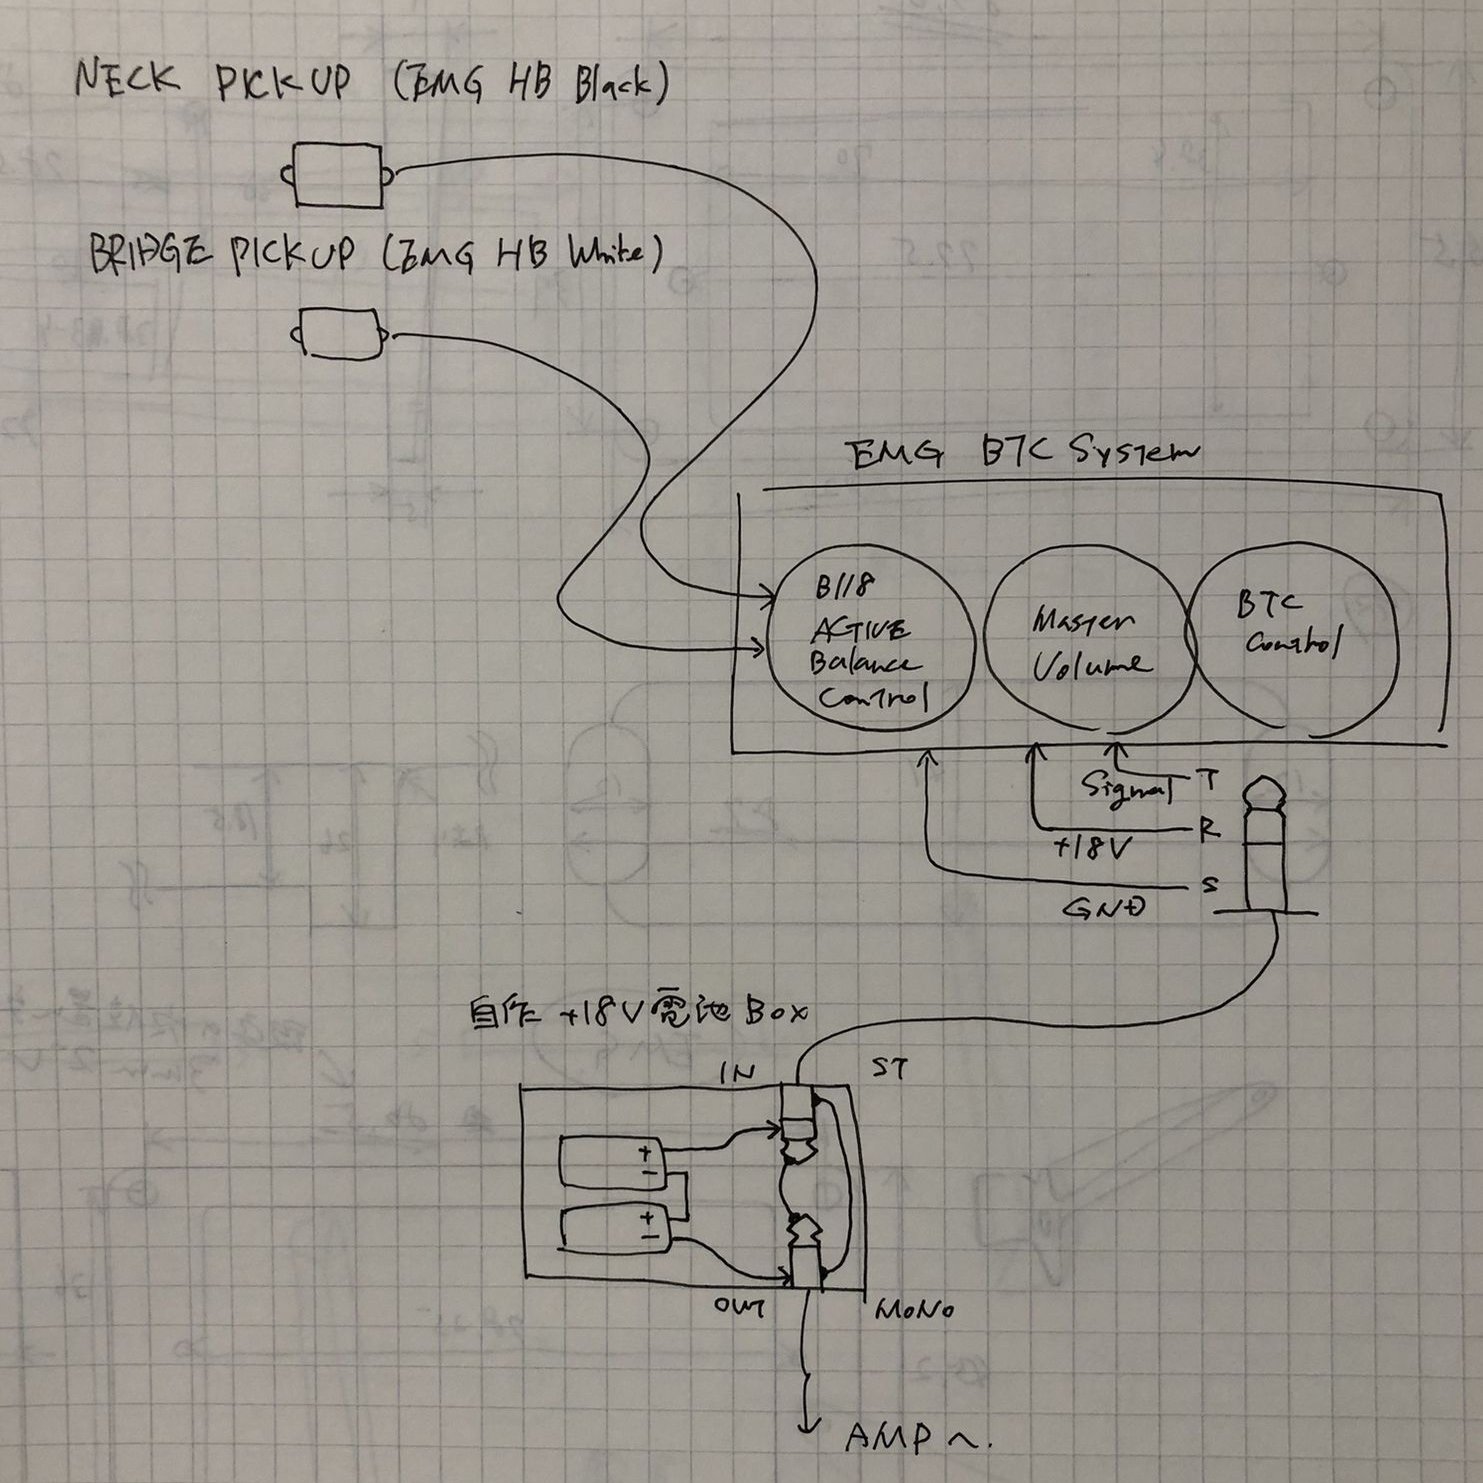 NECK PICKUP (EMG HB Black)
BRIDGE PICKUP (EMG HB White)
EMG BTC System
B118
ACTIVE
Balance
Control
Master
Volume
BTC
Control
Signal T
+18V R
GND S
自作 +18V電池Box
IN ST
+
−
+
−
OUT MONO
AMPへ.